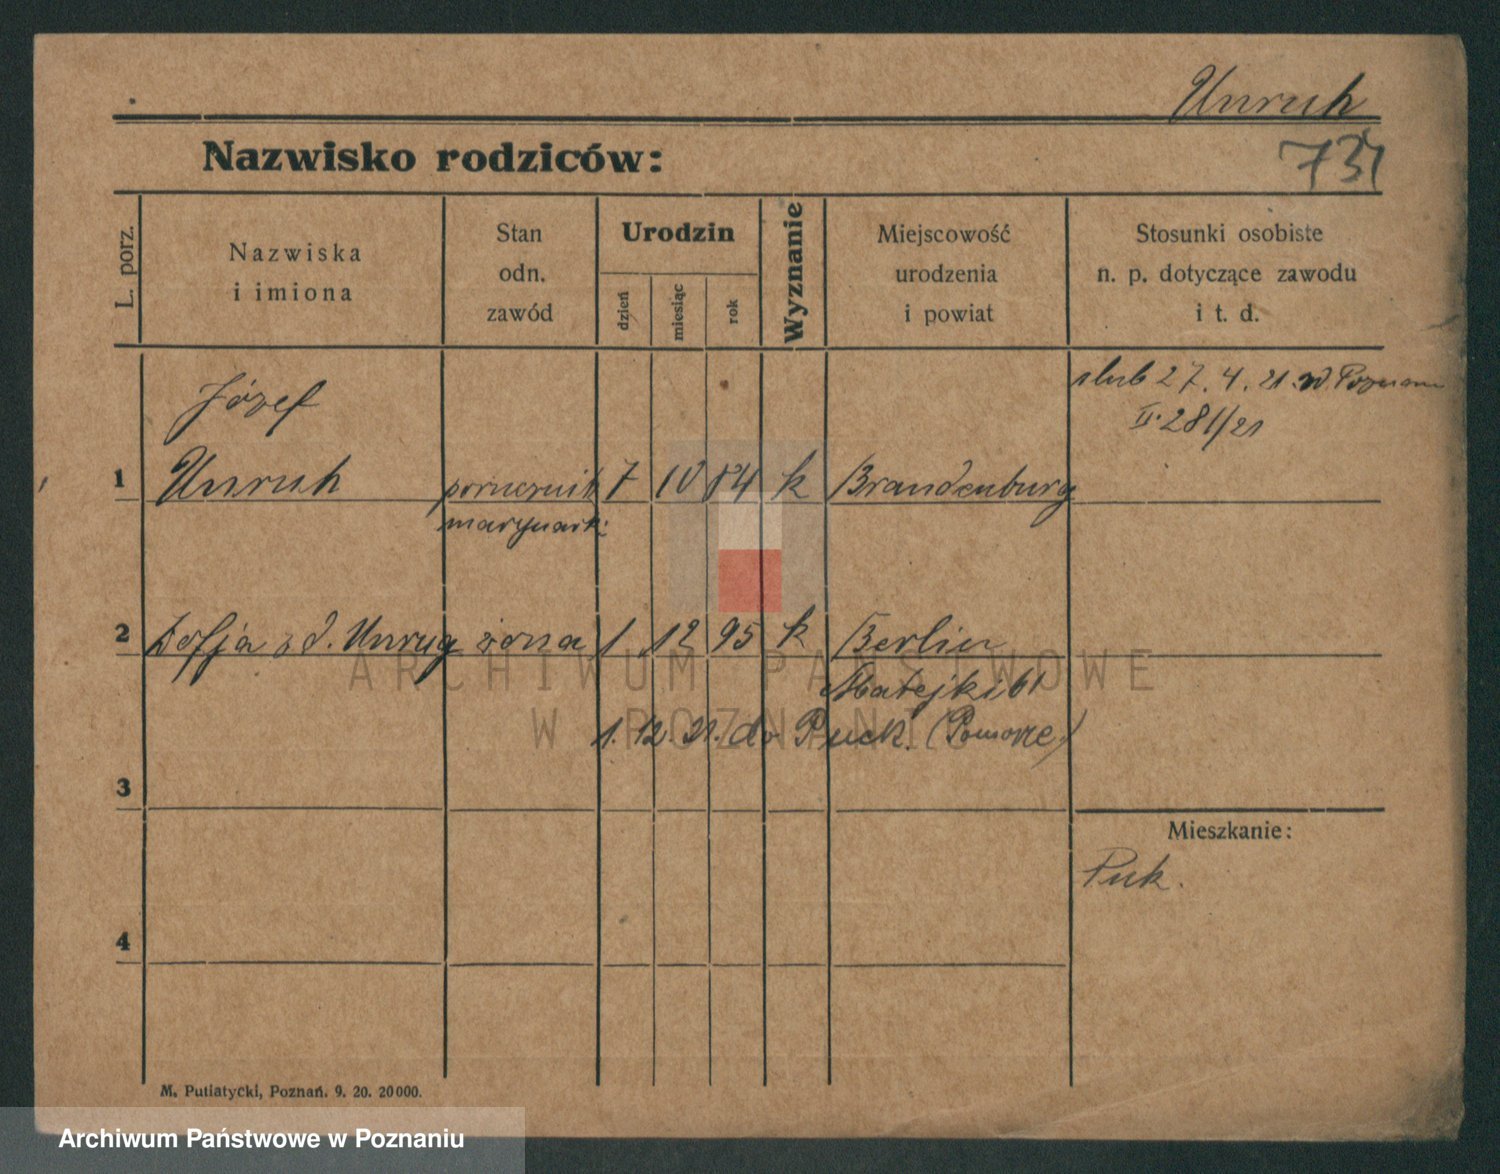 Unruh
Nazwisko rodziców:
731
L. porz.
Nazwiska
i imiona
Stan
odn.
zawód
Urodzin
dzień
miesiąc
rok
Wyznanie
Miejscowość
urodzenia
i powiat
Stosunki osobiste
n. p. dotyczące zawodu
i t. d.
ślub 27. 4. 21. w. Poznaniu
II. 281/21
Józef
1 Unruh porucznik 7 10 84 k Brandenburg
marynark:
2 Zofja z d. Unrug żona 1. 12 95 k Berlin
Matejki 61
1. 12. 21. do Puck. (Pomorze)
3
Mieszkanie:
Puk.
4
M. Putiatycki, Poznań. 9. 20. 20000.
ARCHIWUM PAŃSTWOWE
W POZNANIU
Archiwum Państwowe w Poznaniu